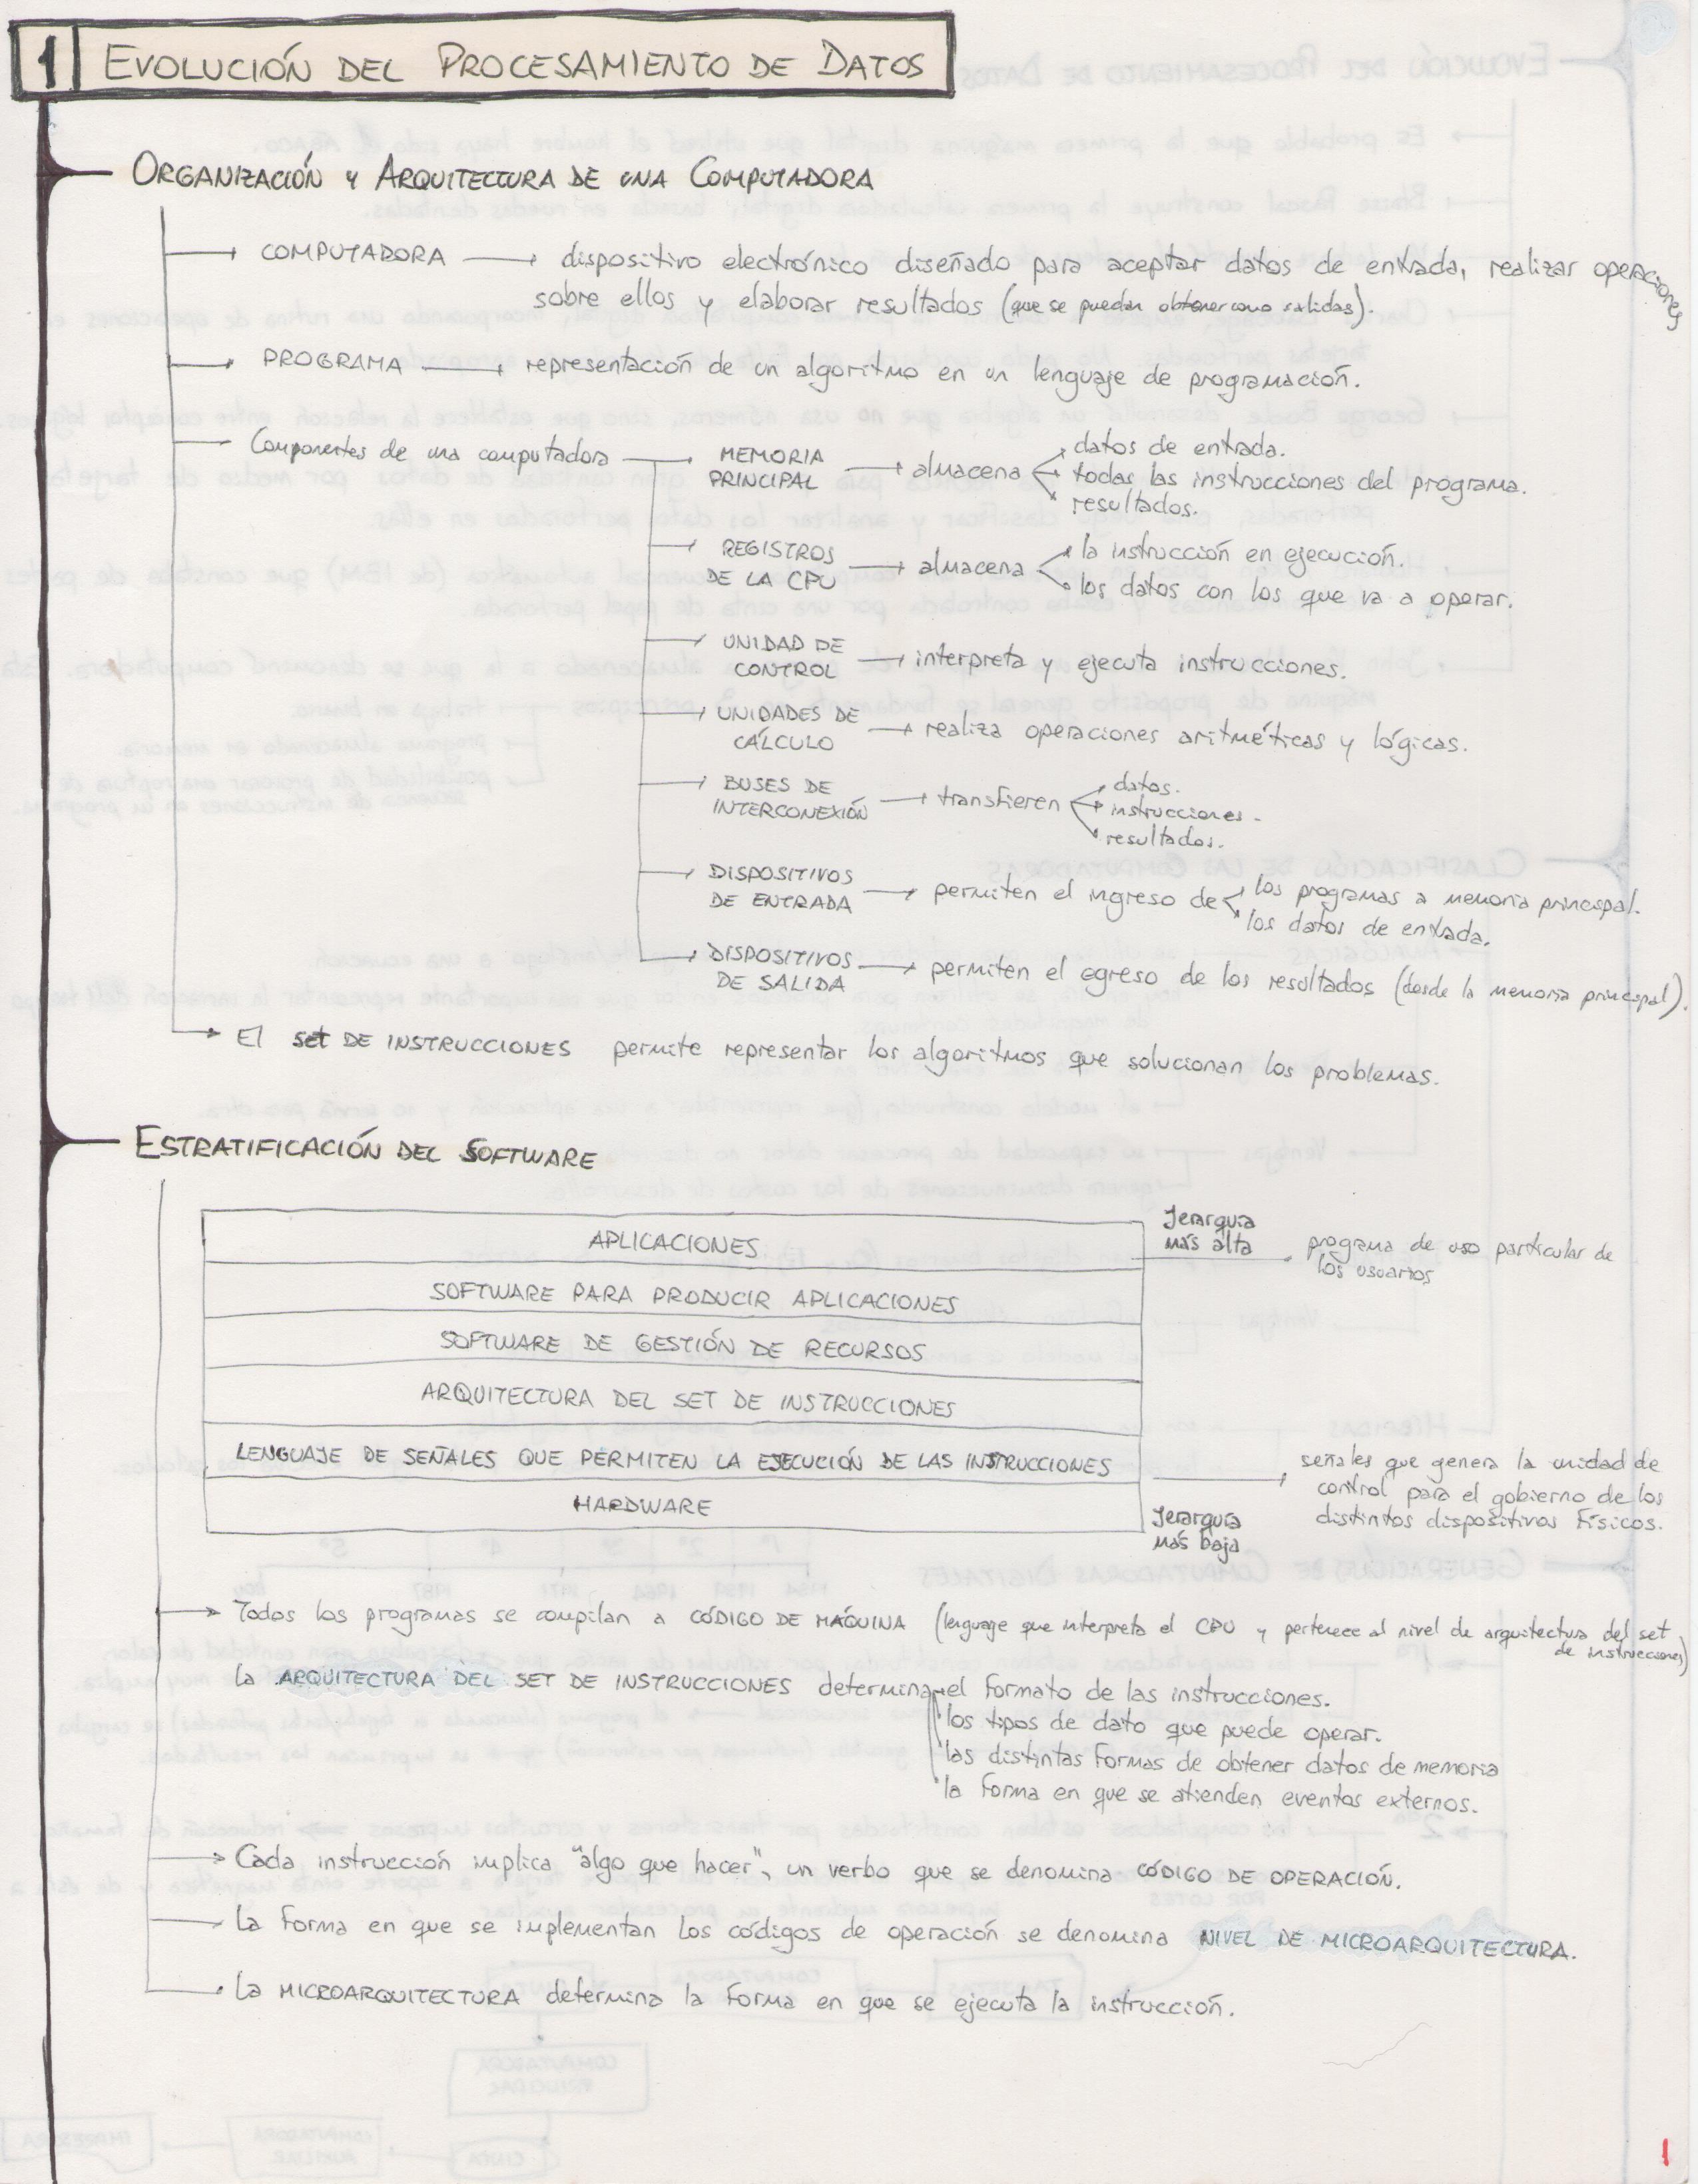 1 EVOLUCIÓN DEL PROCESAMIENTO DE DATOS
ORGANIZACIÓN Y ARQUITECTURA DE UNA COMPUTADORA
COMPUTADORA → dispositivo electrónico diseñado para aceptar datos de entrada, realizar operaciones
sobre ellos y elaborar resultados (que se puedan obtener como salidas).
PROGRAMA → representación de un algoritmo en un lenguaje de programación.
Componentes de una computadora
MEMORIA
PRINCIPAL → almacena
datos de entrada.
todas las instrucciones del programa.
resultados.
REGISTROS
DE LA CPU → almacena
la instrucción en ejecución.
los datos con los que va a operar.
UNIDAD DE
CONTROL → interpreta y ejecuta instrucciones.
UNIDADES DE
CÁLCULO → realiza operaciones aritméticas y lógicas.
BUSES DE
INTERCONEXIÓN → transfieren
datos.
instrucciones.
resultados.
DISPOSITIVOS
DE ENTRADA → permiten el ingreso de
los programas a memoria principal.
los datos de entrada.
DISPOSITIVOS
DE SALIDA → permiten el egreso de los resultados (desde la memoria principal).
El set DE INSTRUCCIONES permite representar los algoritmos que solucionan los problemas.
ESTRATIFICACIÓN DEL SOFTWARE
Jerarquía
más alta
APLICACIONES
programa de uso particular de
los usuarios
SOFTWARE PARA PRODUCIR APLICACIONES
SOFTWARE DE GESTIÓN DE RECURSOS
ARQUITECTURA DEL SET DE INSTRUCCIONES
LENGUAJE DE SEÑALES QUE PERMITEN LA EJECUCIÓN DE LAS INSTRUCCIONES
señales que genera la unidad de
control para el gobierno de los
distintos dispositivos físicos.
HARDWARE
Jerarquía
más baja
Todos los programas se compilan a CÓDIGO DE MÁQUINA (lenguaje que interpreta el CPU y pertenece al nivel de arquitectura del set
de instrucciones)
La ARQUITECTURA DEL SET DE INSTRUCCIONES determina
el formato de las instrucciones.
los tipos de dato que puede operar.
las distintas formas de obtener datos de memoria
la forma en que se atienden eventos externos.
Cada instrucción implica "algo que hacer", un verbo que se denomina CÓDIGO DE OPERACIÓN.
La forma en que se implementan los códigos de operación se denomina NIVEL DE MICROARQUITECTURA.
La MICROARQUITECTURA determina la forma en que se ejecuta la instrucción.
1